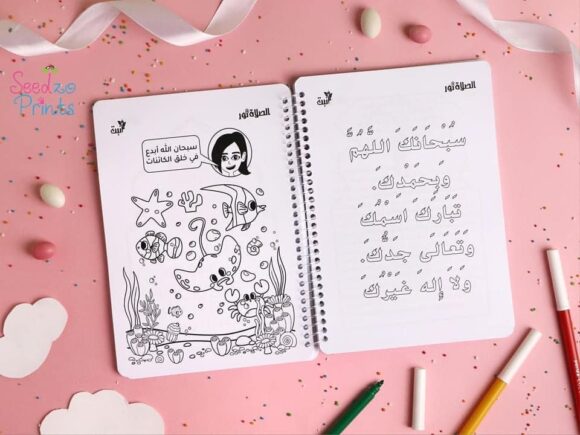 Seedzo
Prints
الصلاة نور
نبت
سبحان الله أبدع
في خلق الكائنات
الصلاة نور
نبت
سُبْحَانَكَ اللَّهُمَّ
وَبِحَمْدِكَ.
تَبَارَكَ اسْمُكَ
وَتَعَالَى جَدُّكَ.
وَلَا إِلَهَ غَيْرُكَ